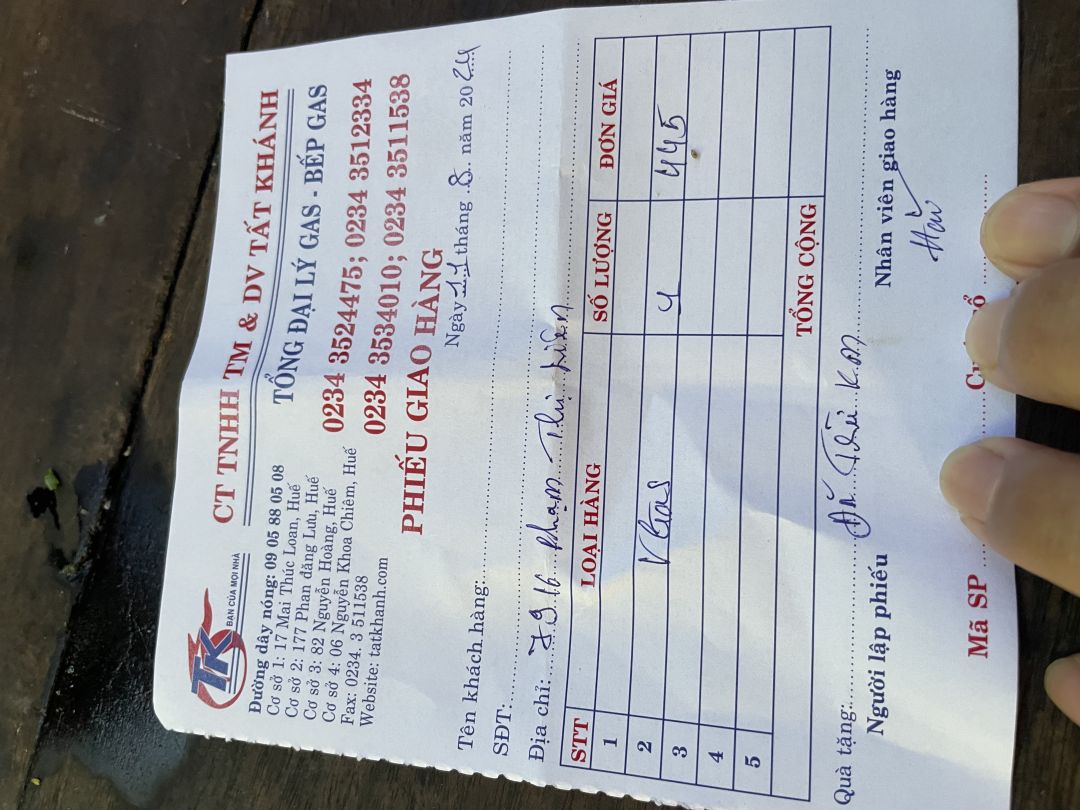 TK
BẠN CỦA MỌI NHÀ
CT TNHH TM & DV TẤT KHÁNH
TỔNG ĐẠI LÝ GAS - BẾP GAS
Đường dây nóng: 09 05 88 05 08
Cơ sở 1: 17 Mai Thúc Loan, Huế
Cơ sở 2: 177 Phan đăng Lưu, Huế
Cơ sở 3: 82 Nguyễn Hoàng, Huế
Cơ sở 4: 06 Nguyễn Khoa Chiêm, Huế
Fax: 0234. 3 511538
Website: tatkhanh.com
0234 3524475; 0234 3512334
0234 3534010; 0234 3511538
PHIẾU GIAO HÀNG
Ngày 11 tháng 8 năm 2024
Tên khách hàng:
SĐT:
Địa chỉ: 79.16 Phạm Thị Liên
STT LOẠI HÀNG SỐ LƯỢNG ĐƠN GIÁ
1
2 Gas
3 445
4
5
TỔNG CỘNG
Quà tặng:
Người lập phiếu Nhân viên giao hàng
Mã SP